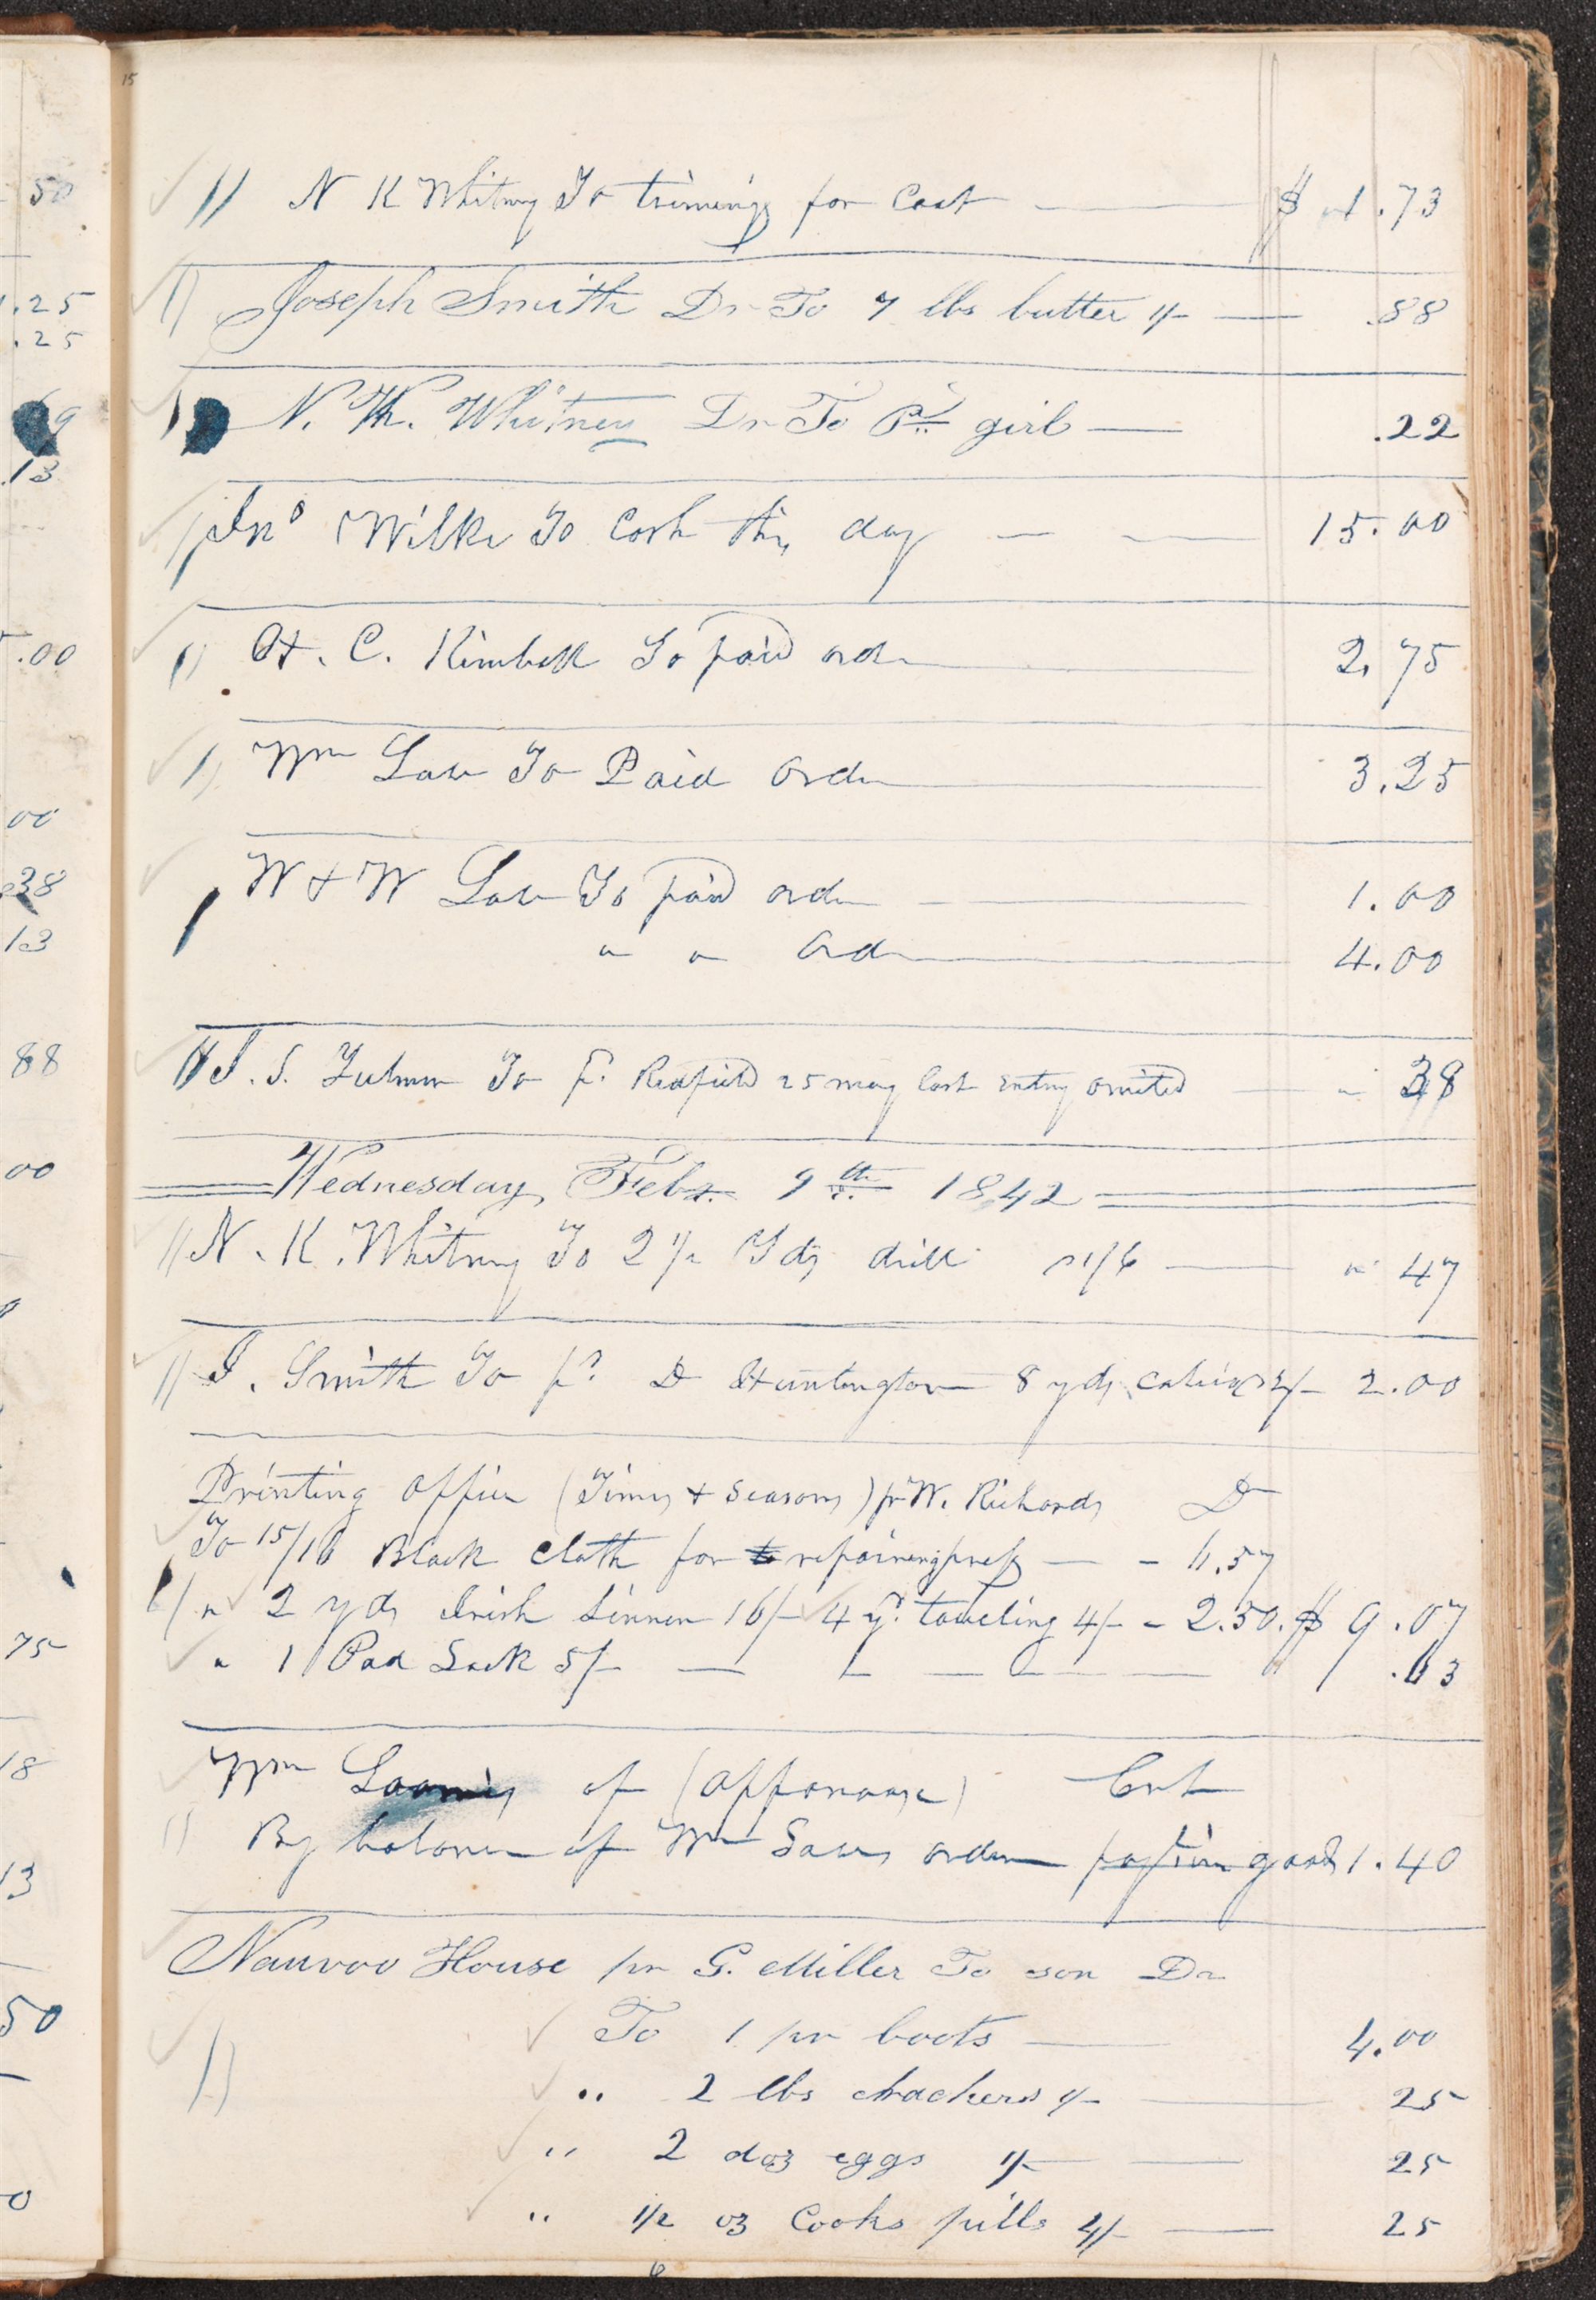 15
N K Whitney To triming for Coat $ 1.73
Joseph Smith Dr To 7 lbs butter 1/- .88
N. K. Whitney Dr To Pd girl .22
Jno Wilki To Cash this day 15.00
H. C. Kimball To paid order 2.75
Wm Law To Paid Order 3.25
W & W Law To paid order 1.00
" " Order 4.00
S. Fulmer To pr Redfield 25 may last entry omited " 38
Wednesday, Feby. 9th 1842
N. K. Whitney To 2 1/2 Yds drill 1/6 " 47
J. Smith To pr D Huntington 8 yds calico 2/- 2.00
Printing Office (Times & Seasons) pr W. Richards Dr
To 15/16 Black cloth for to repairing press 6.57
" 2 yds Irish Linnen 16/- 4 yd toweling 4/- - 2.50. $ 9.07
" 1 Pad Lock 5/- .63
Wm Loomis of (Appanoose) Crt
By balance of Wm Laws order good 1.40
Nauvoo House pr G. Miller To son Dr
To 1 pr boots 4.00
" 2 lbs chackers 1/- 25
" 2 doz eggs 1/- 25
" 1/2 oz Cooks pills 4/- 25
50
1.25
.25
69
.13
.00
00
38
13
88
00
75
18
13
50
0